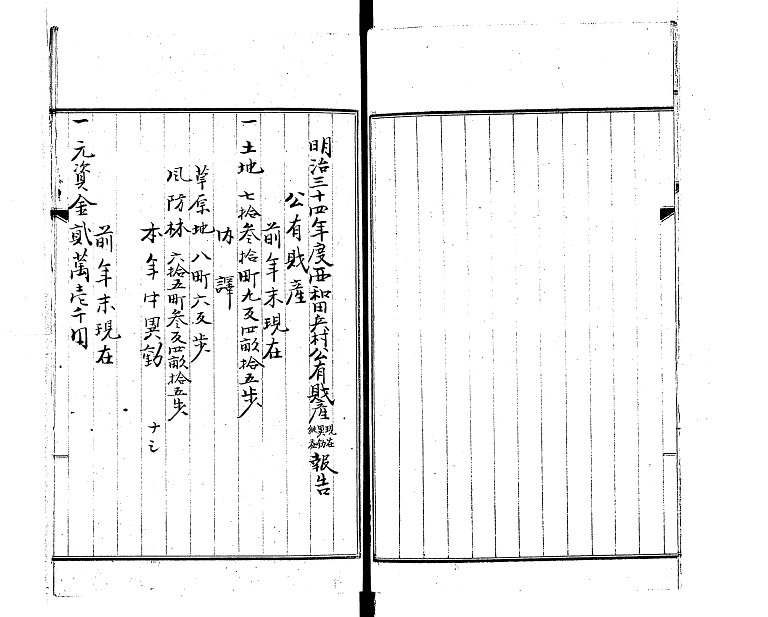 明治三十四年度西和田兵村公有財産現在異動報告
公有財産
前年末現在
一土地 七拾叁拾町九反四畝拾五歩
内譯
草原地 八町六反歩
風防林 六拾五町叁反四畝拾五歩
本年中異動 ナシ
前年末現在
一元資金貳萬壱千円